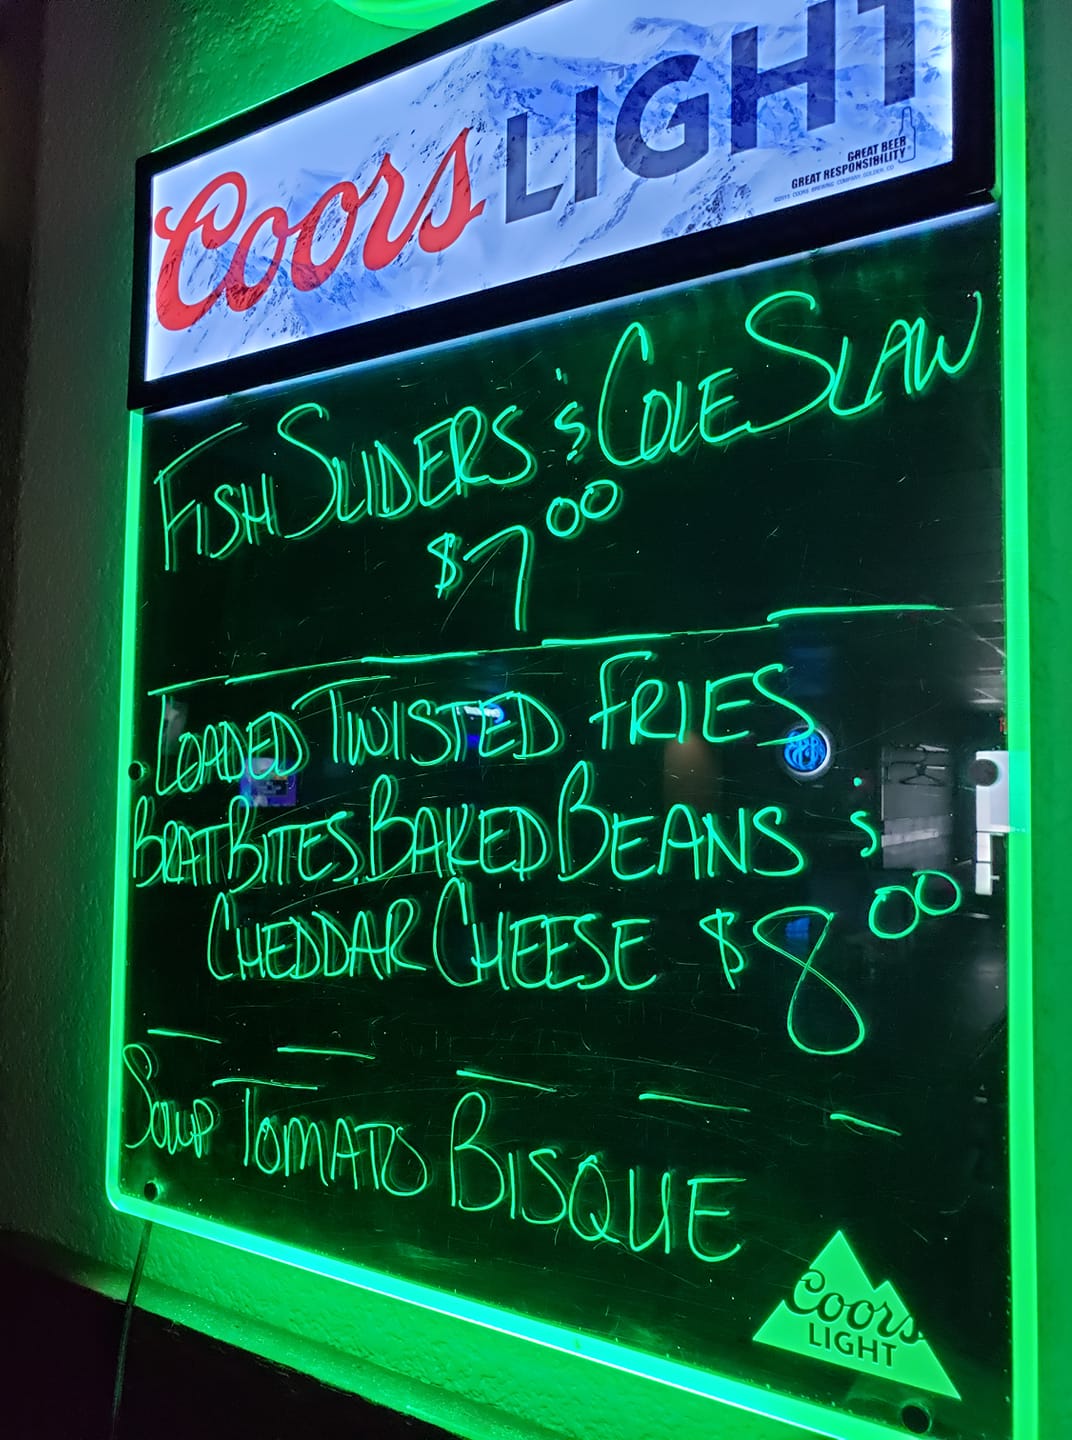 Coors LIGHT
GREAT BEER
GREAT RESPONSIBILITY
©2015 COORS BREWING COMPANY, GOLDEN, CO
FISH SLIDERS & COLE SLAW
$7.00
LOADED TWISTED FRIES
BRAT BITES, BAKED BEANS &
CHEDDAR CHEESE $8.00
SOUP TOMATO BISQUE
Coors
LIGHT